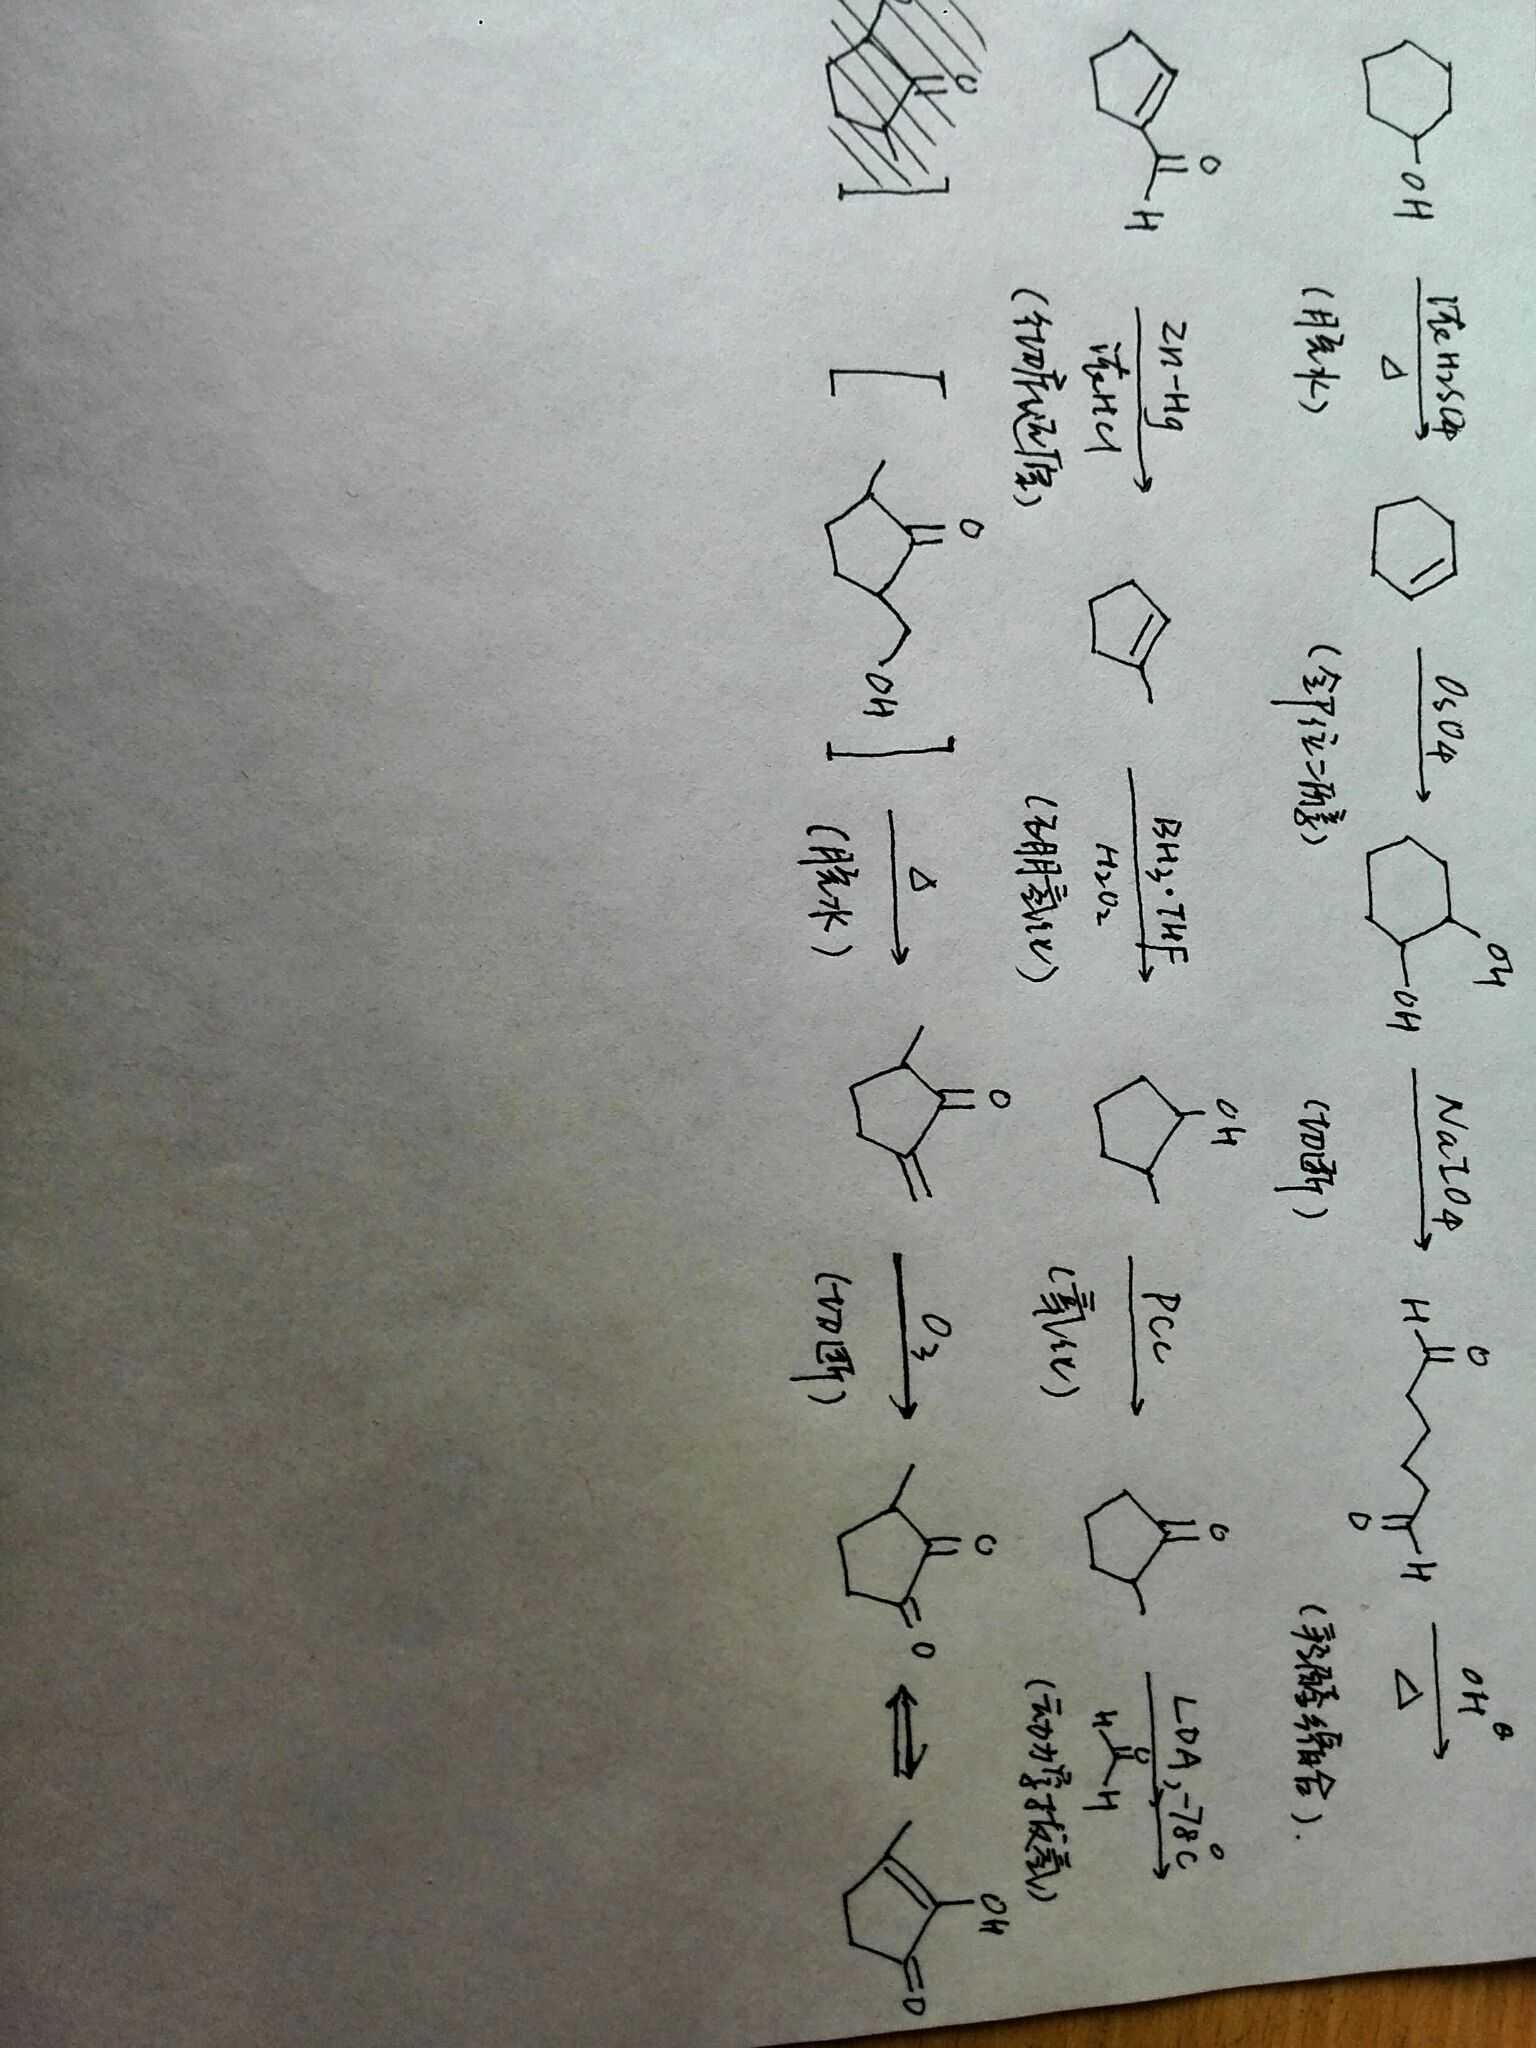 OH 浓H2SO4 △ (脱水) OsO4 (邻位二醇) OH OH NaIO4 (切断) H O O H OH⊖ △ (羟醛缩合).
O H Zn-Hg 浓HCl (羰基还原) BH3·THF H2O2 (硼氢化) OH PCC (氧化) O LDA, -78°C H O H (动力学拔氢)
O [ O OH ] △ (脱水) O O3 (切断) O O OH O